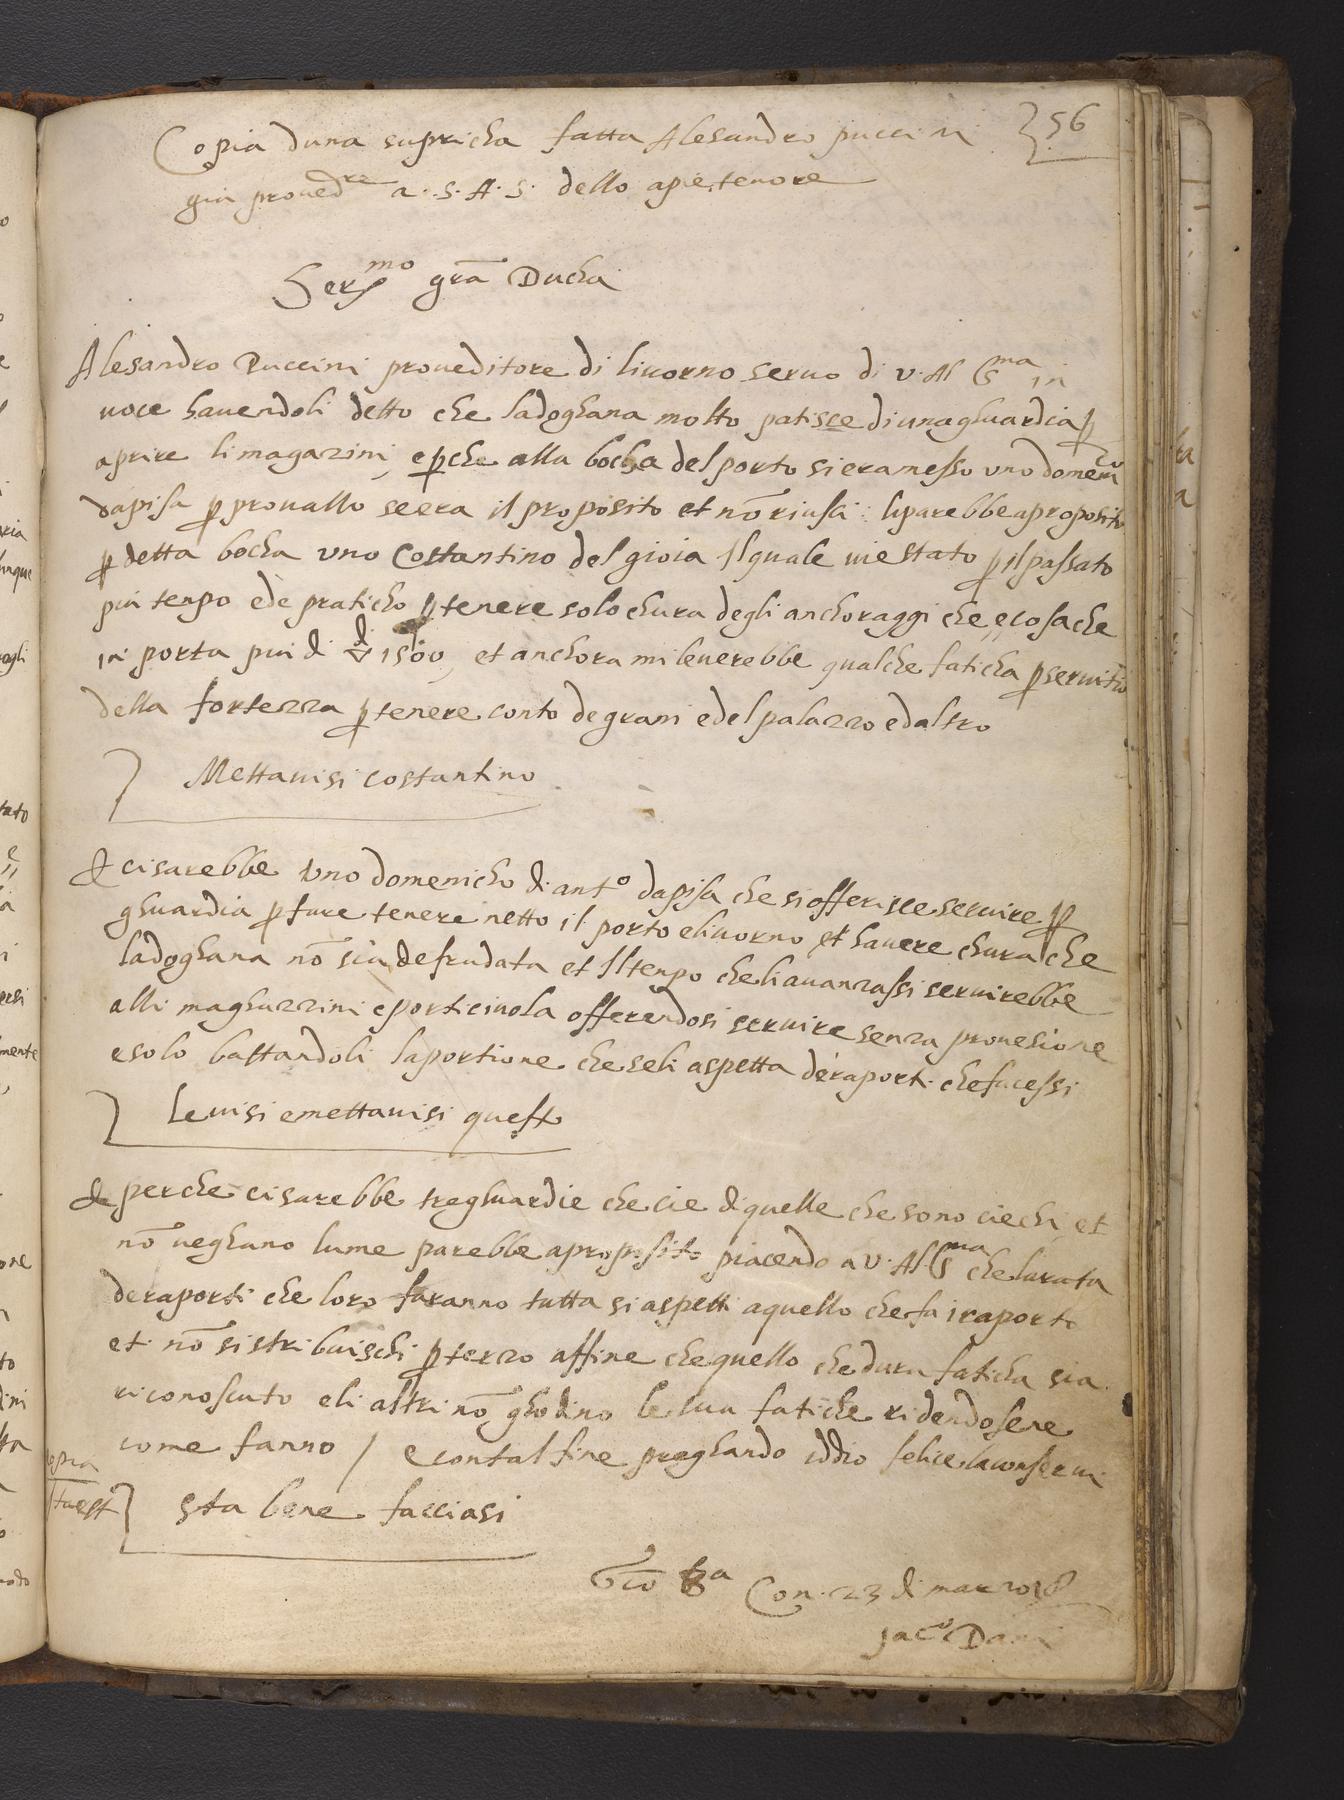 Copia duna supricha fatta Alesandro puccini 56
gia proued^re a. S. A. S. dello apie, tenore
Ser^mo grā Ducha
Alesandro Puccini proueditore di liuorno seruo di v. Al S^ma in
uoce hauendoli detto che ladoghana molto patisce di una ghuardia p
aprire li magazini, e pche alla bocha del porto si era messo uno domen^co
dapisa p prouallo se era il proposito et nō riusci: li parebbe a proposito
p detta bocha uno Costantino del gioia Il quale uie stato p il passato
piu tenpo ed e praticho p tenere solo chura degli anchoraggi che e cosa che
in porta piu di 1500, et anchora mi leuerebbe qualche faticha p seruitio
della fortezza p tenere conto de grani e del palazzo e daltro
Mettauisi costantino
& ci sarebbe uno domenicho di ant^o dapisa che si offerisce seruire p
ghuardia p fare tenere netto il porto e liuorno et hauere chura che
ladoghana nō sia defrudata et Il tenpo che li auanzassi seruirebbe
alli maghazzini e porticiuola offerendosi seruire senza prouesione
e solo bastandoli la portione che se li aspetta de raporti che facessi
Leuisi e mettauisi questo
& perche ci sarebbe tre ghuardie che cie di quelle che sono ciechi et
nō ueghano lume parebbe a proposito piacendo a v. Al S^ma che la rata
de raporti che loro faranno tutta si aspetti a quello che fa i raporto
et nō si stribuischi p terzo affine che quello che dura faticha sia
riconosciuto e li altri nō ghodino le sua fatiche ridendosene
come fanno / e con tal fine preghando iddio felice la conserui
sta bene facciasi
Con. 23 di marzo
Jac^o Dani